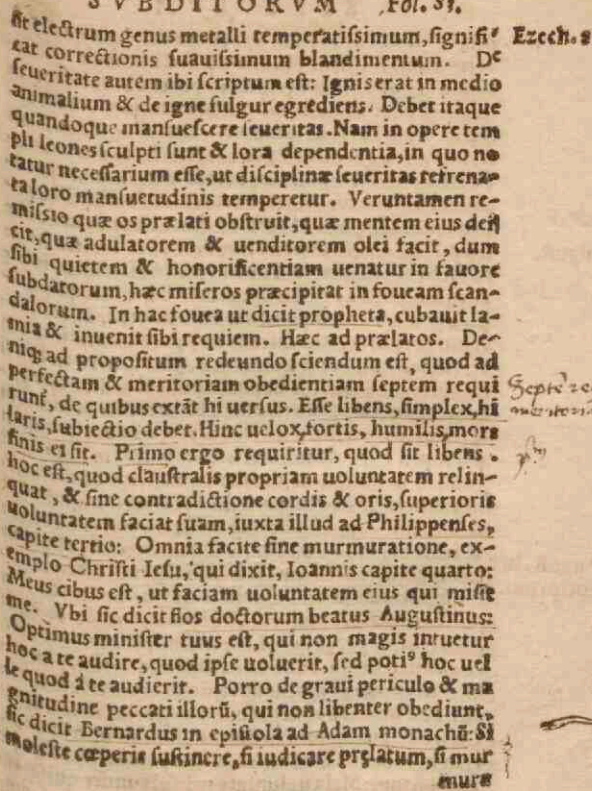 SVBDITORVM Fol. 51.
sit electrum genus metalli temperatissimum, signifi- Ezech. 8
cat correctionis suauissimum blandimentum. De
seueritate autem ibi scriptum est: Ignis erat in medio
animalium & de igne fulgur egrediens. Debet itaque
quandoque mansuescere seueritas. Nam in opere tem
pli leones sculpti sunt & lora dependentia, in quo no
tatur necessarium esse, ut disciplinæ seueritas refrena-
ta loro mansuetudinis temperetur. Veruntamen re-
missio quæ os prælati obstruit, quæ mentem eius deij
cit, quæ adulatorem & uenditorem olei facit, dum
sibi quietem & honorificentiam uenatur in fauore
subdatorum, hæc miseros præcipitat in foueam scan-
dalorum. In hac fouea ut dicit propheta, cubauit la-
mia & inuenit sibi requiem. Hæc ad prælatos. De-
niq; ad propositum redeundo sciendum est, quod ad
perfectam & meritoriam obedientiam septem requi
runt, de quibus extāt hi uersus. Esse libens, simplex, hi
laris, subiectio debet. Hinc uelox, fortis, humilis, mors
finis ei sit. Primo ergo requiritur, quod sit libens.
hoc est, quod claustralis propriam uoluntatem relin-
quat, & sine contradictione cordis & oris, superioris
uoluntatem faciat suam, iuxta illud ad Philippenses,
capite tertio: Omnia facite sine murmuratione, ex-
emplo Christi Iesu, qui dixit, Ioannis capite quarto:
Meus cibus est, ut faciam uoluntatem eius qui misit
me. Vbi sic dicit flos doctorum beatus Augustinus:
Optimus minister tuus est, qui non magis intuetur
hoc a te audire, quod ipse uoluerit, sed poti⁹ hoc uel
le quod á te audierit. Porro de graui periculo & ma
gnitudine peccati illorū, qui non libenter obediunt,
sic dicit Bernardus in epistola ad Adam monachū: Si
moleste cœperis sustinere, si iudicare pręlatum, si mur
mura